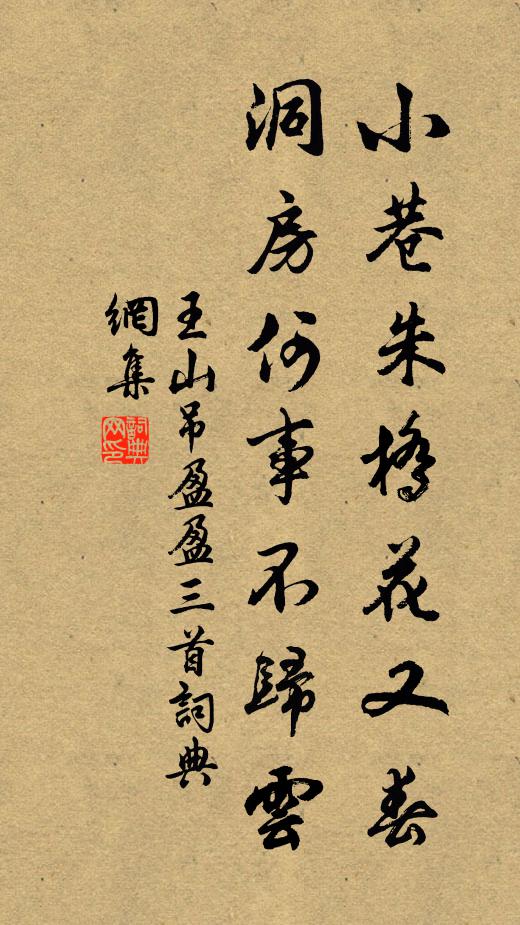 小巷朱橋花又春
洞房何事不歸雲
王山吊盈盈三首詞典
網集
詞典网印